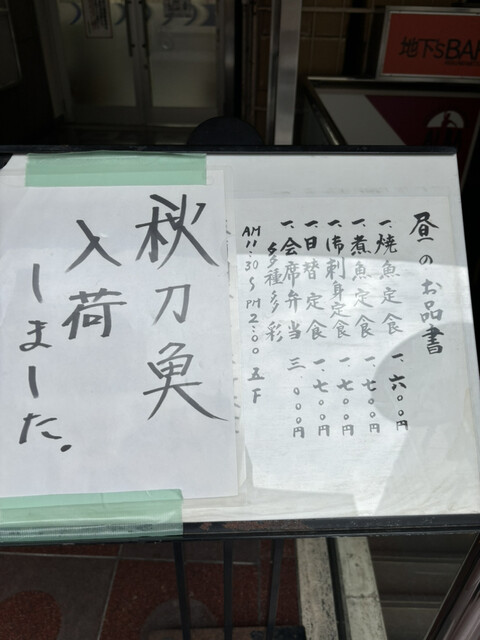 地下's BAR
昼のお品書
一、焼魚定食 一、六〇〇円
一、煮魚定食 一、七〇〇円
一、御刺身定食 一、七〇〇円
一、日替定食 一、七〇〇円
一、会席弁当 三、〇〇〇円
多種多彩
AM11:30〜PM2:00
秋刀魚
入荷
しました。